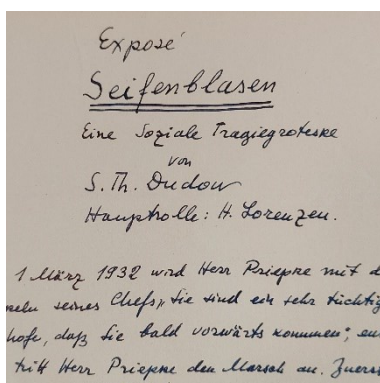 Exposé
Seifenblasen
Eine Soziale Tragiegroteske
von
S. Th. Dudow
Hauptrolle: H. Lorenzen.
1 März 1932 wird Herr Priepke mit d
seines Chefs, „Sie sind ein sehr tüchtig
hofe, daß sie bald vorwärts kommen", en
tritt Herr Priepke den Marsch an. Zuerst